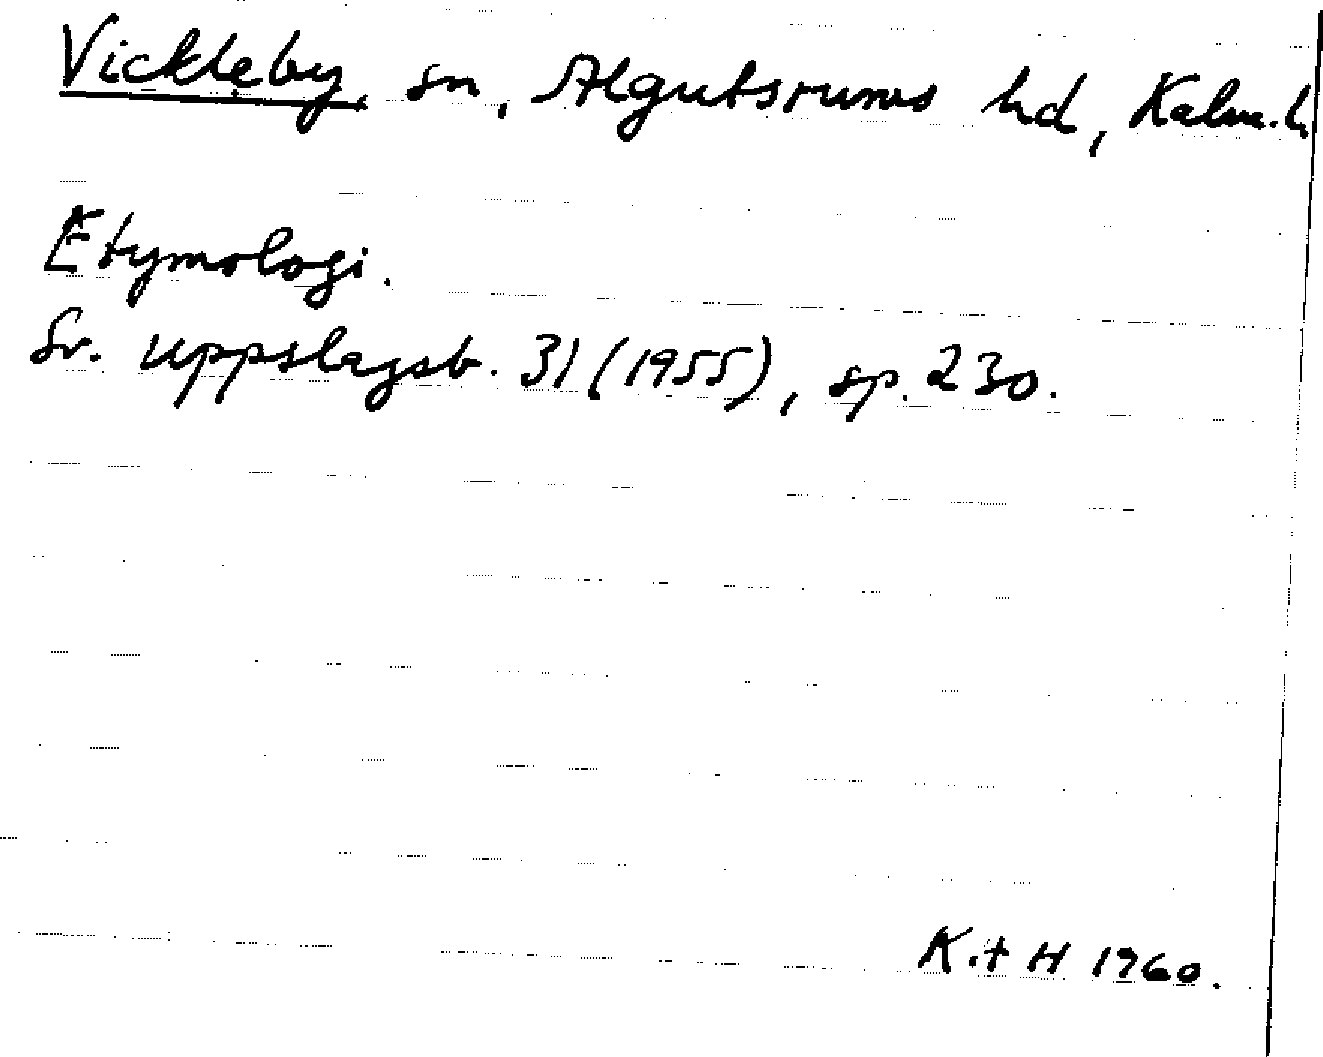 Vickleby, sn, Algutsrums hd, Kalm. l.
Etymologi.
Sv. uppslagsb. 31 (1955), sp. 230.
K.t H 1960.